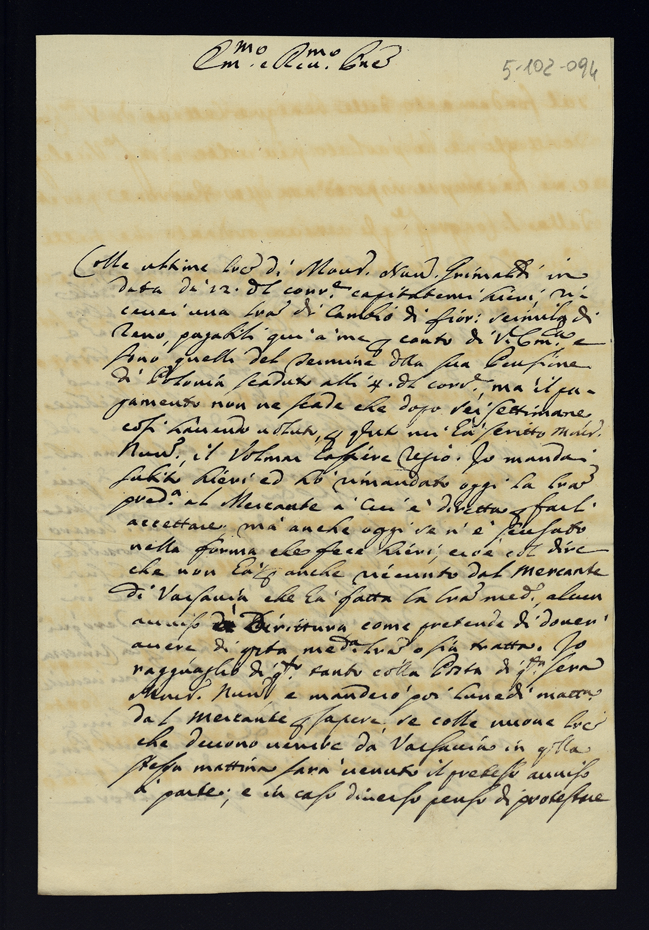 Em.mo e Rev.mo Pñe
5-102-094
Colle ultime lrẽ di Mons. Nun. Grimaldi in
data di 12. dl corr.e capitatemi hieri, ri-
cevei una lrã di Cambio di fior: seimila di
Reno, pagabili qui a me p conto di V. Em.a e
sono quelli del semestre dlla sua Pensione
di Polonia scaduto alli 4. dl corr.e, ma il pa-
gamento non ne scade che dopo sei settimane
così havendo voluto, p qnto mi hà scritto Mons.
Nunz., il Volmar Cassiere regio. Io mandai
subito hieri ed hò rimandato oggi la lrã
pred.a al Mercante à cui è diretta p farla
accettare, mà anche oggi se n'è scusato
nella forma che fece hieri, cioè col dire
che non hà p anche ricevuto dal Mercante
di Varsavia che hà fatta la lrã med.a, alcun
avviso à Dirittura come pretende di dover'
avere di qsta med.a lrã o sia tratta. Io
ragguaglio di q.to tanto colla Posta di q.ta sera
Mons. Nunz. e manderò poi lunedì matta.
dal Mercante p sapere se colle nuove lrẽ
che devono venire da Varsavia in qlla
stessa mattina sarà venuto il preteso avviso
à parte; e in caso diverso penso di protestare